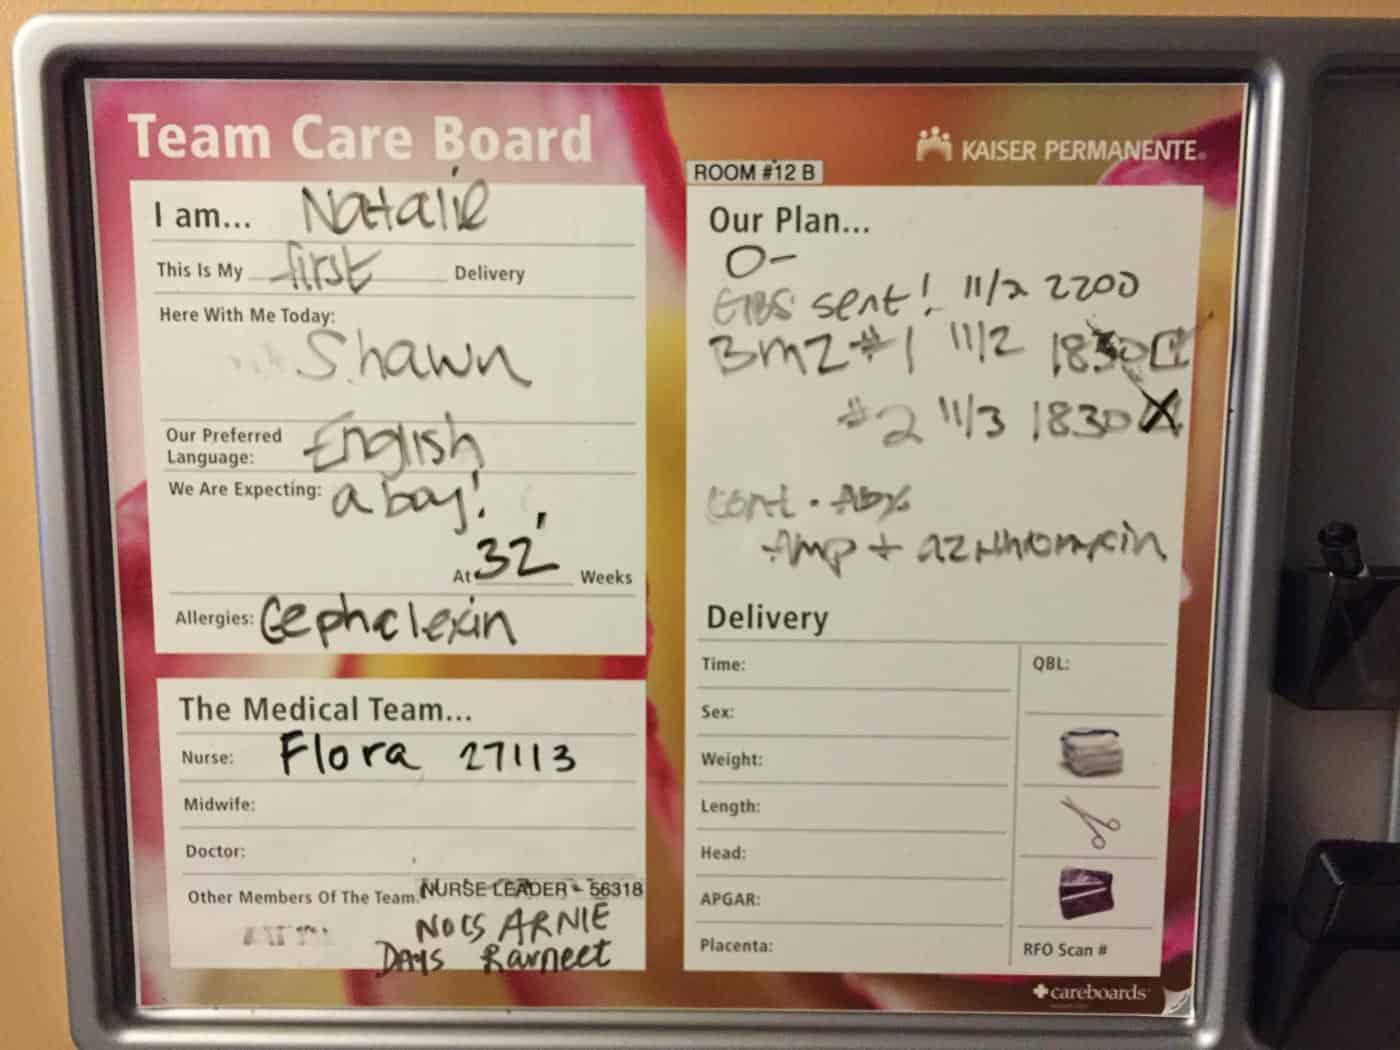 Team Care Board
KAISER PERMANENTE®
ROOM #12 B
I am... Natalie
This Is My first Delivery
Here With Me Today:
Shawn
Our Preferred Language: English
We Are Expecting: a boy!
At 32 Weeks
Allergies: Cephalexin
The Medical Team...
Nurse: Flora 27113
Midwife:
Doctor:
Other Members Of The Team: NURSE LEADER - 56318
NOCS ARNIE
DAYS Ravneet
Our Plan...
O-
GBS sent! 11/2 2200
BMZ #1 11/2 1830
#2 11/3 1830
cont. Abx
Amp + azithromycin
Delivery
Time:
Sex:
Weight:
Length:
Head:
APGAR:
Placenta:
QBL:
RFO Scan #
careboards